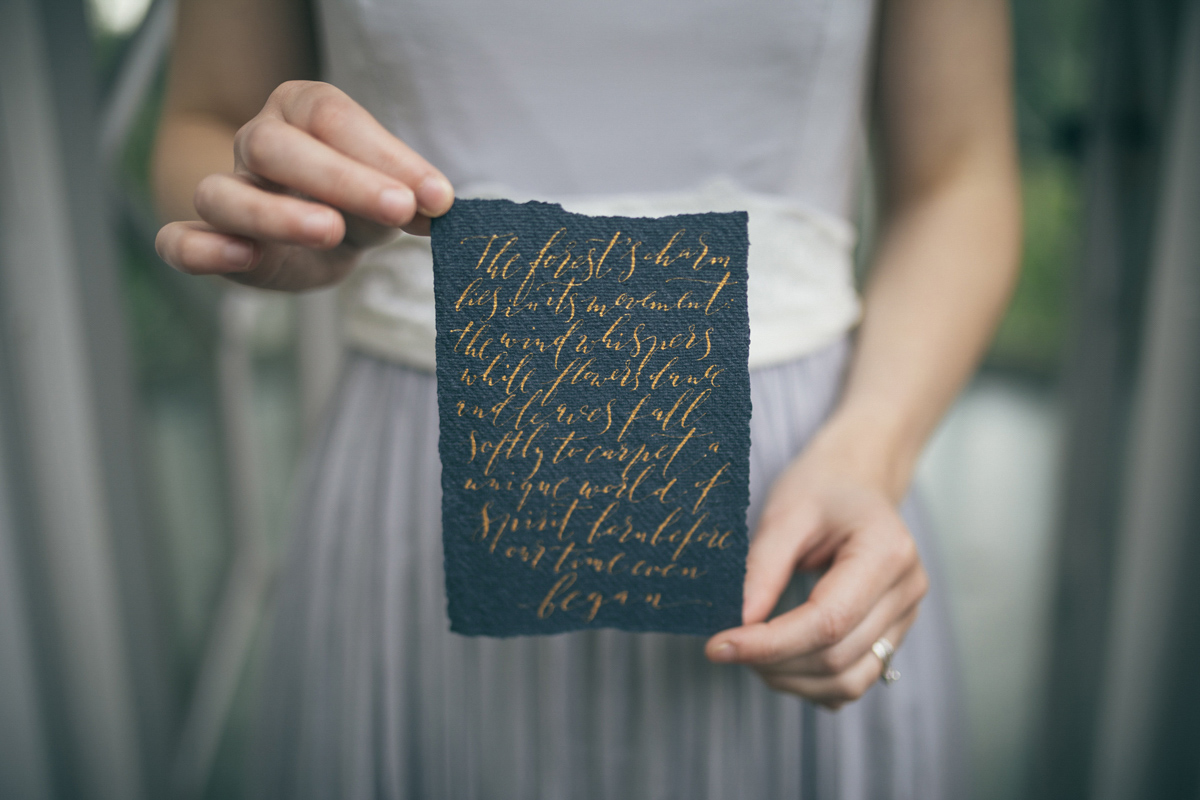 The forest's charm
lies in its movement:
the wind whispers
while flowers dance
and leaves fall
softly to carpet a
unique world of
spirit born before
our time even
began